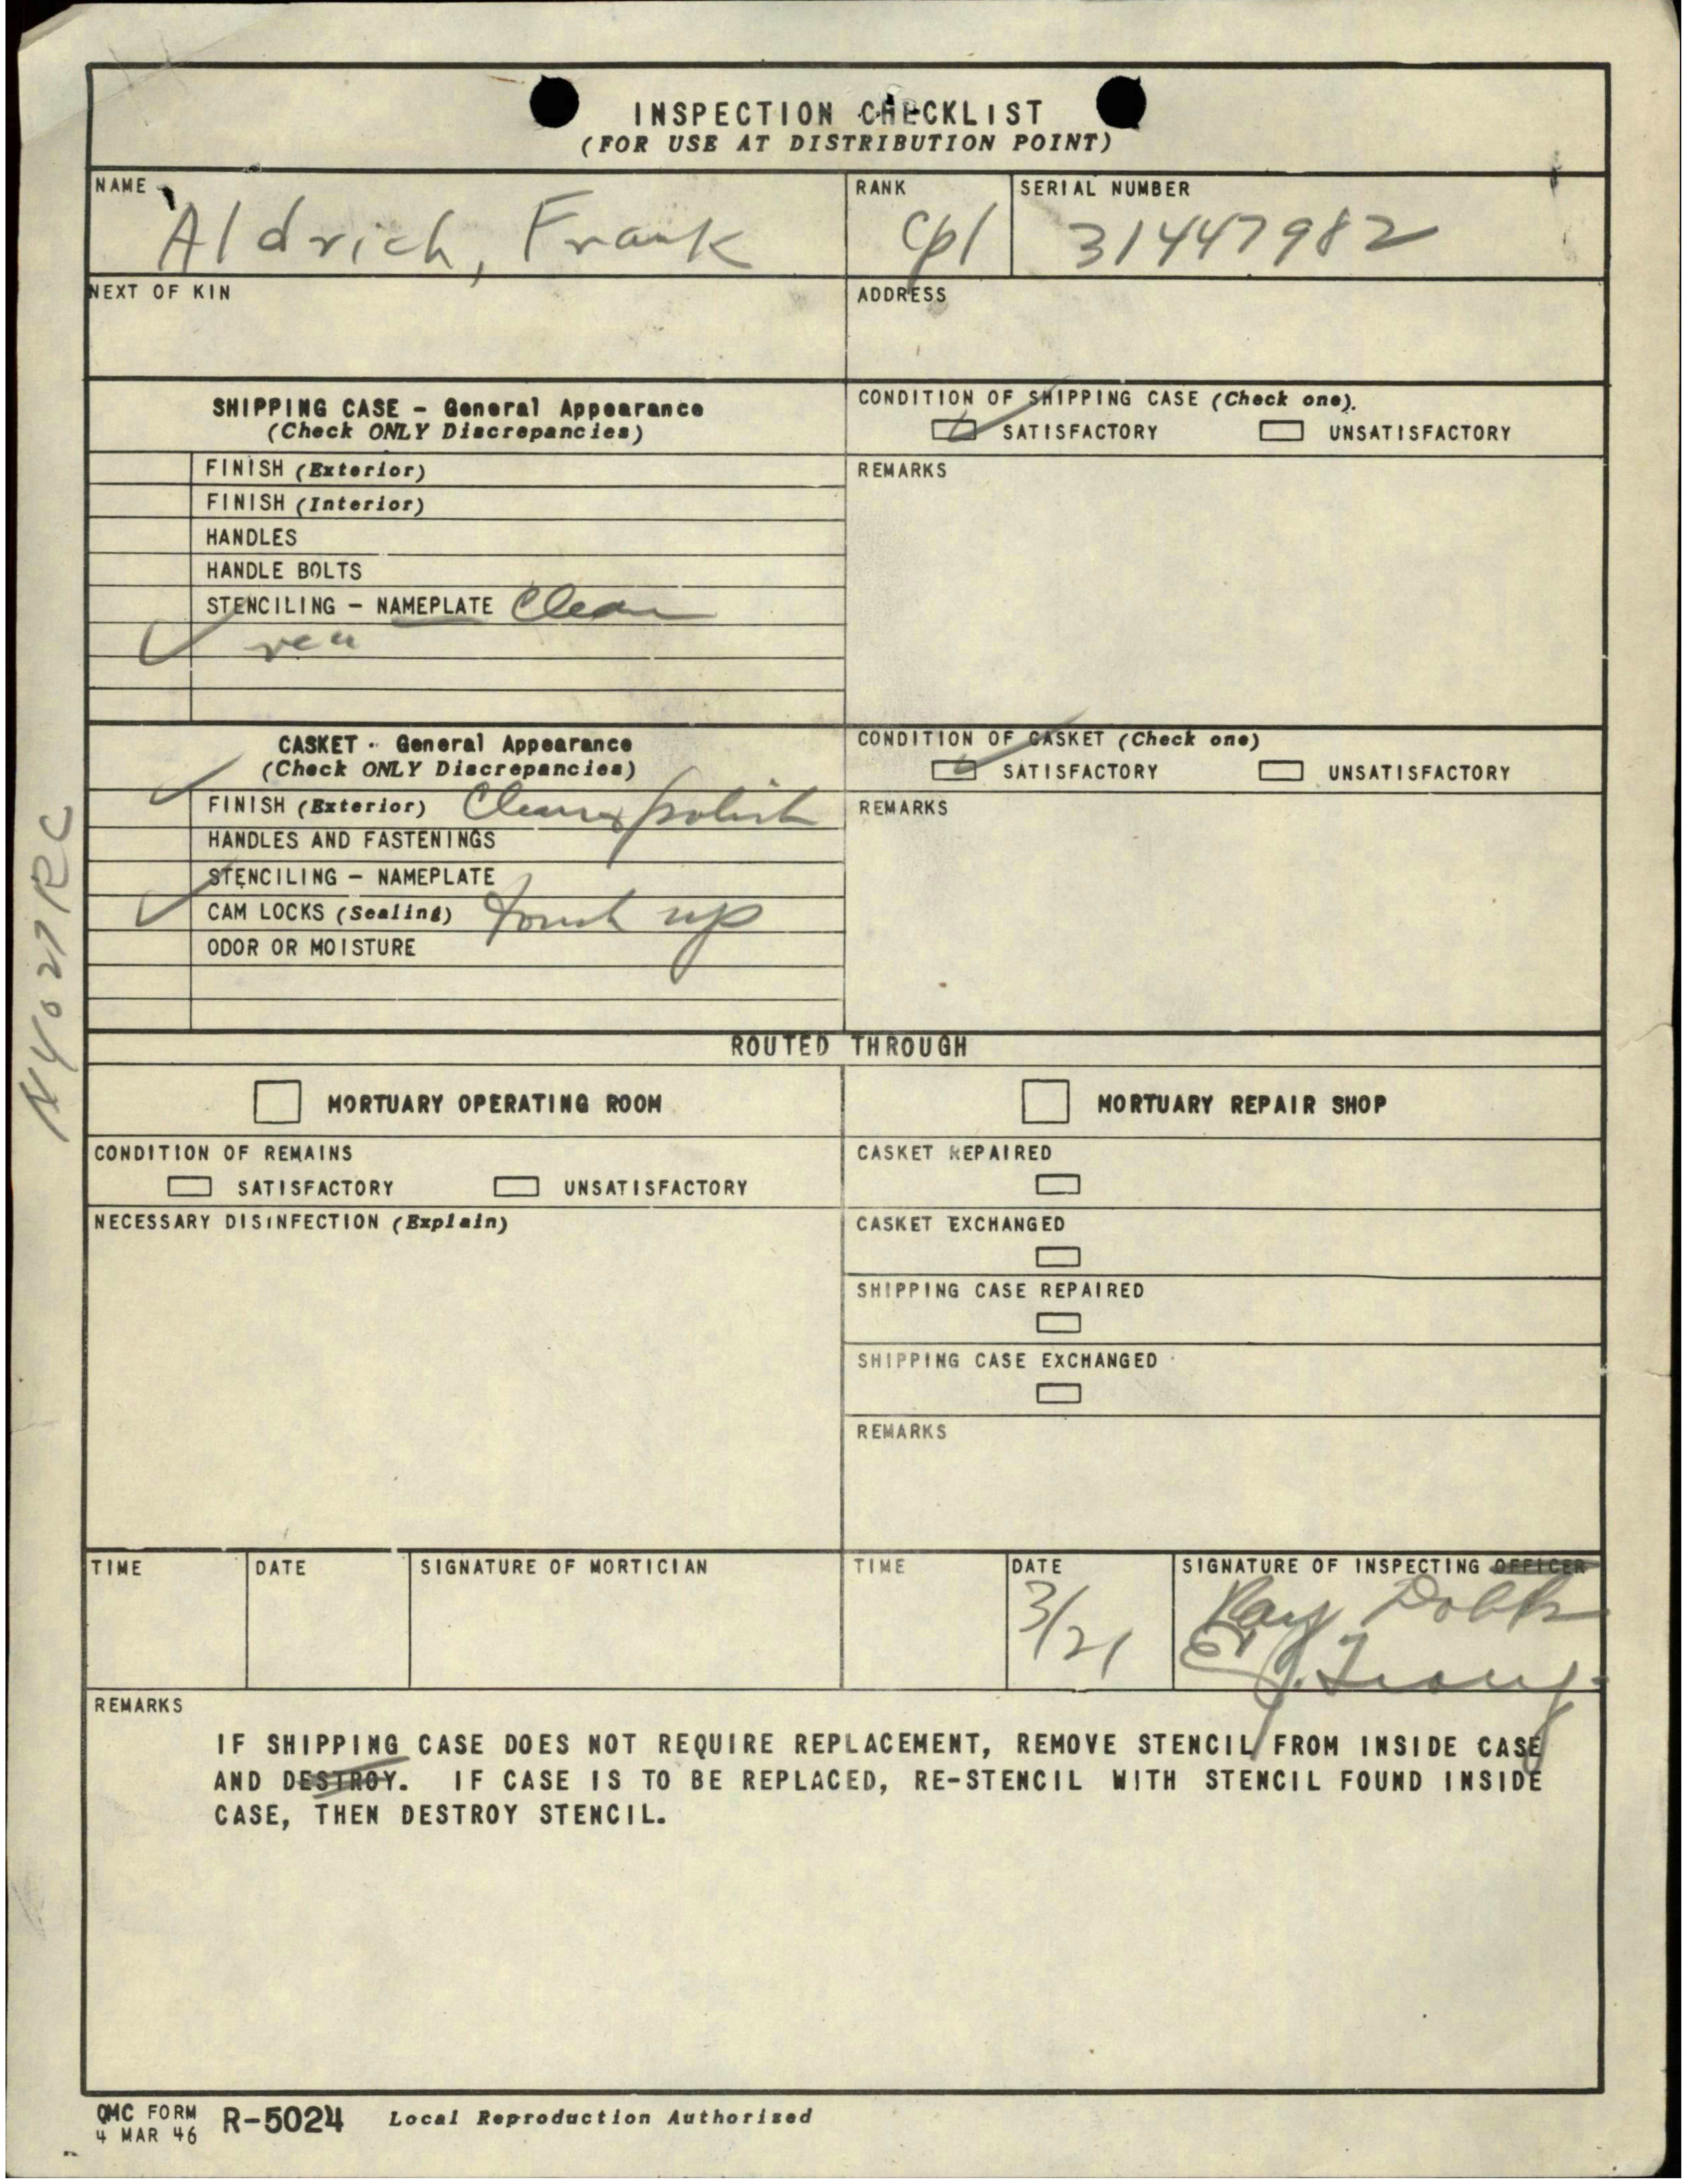 INSPECTION CHECKLIST
(FOR USE AT DISTRIBUTION POINT)
NAME RANK SERIAL NUMBER
Aldrich, Frank Cpl 31447982
NEXT OF KIN ADDRESS
SHIPPING CASE - General Appearance
(Check ONLY Discrepancies)
CONDITION OF SHIPPING CASE (Check one).
SATISFACTORY UNSATISFACTORY
FINISH (Exterior)
REMARKS
FINISH (Interior)
HANDLES
HANDLE BOLTS
STENCILING - NAMEPLATE Clean
CASKET - General Appearance
(Check ONLY Discrepancies)
CONDITION OF CASKET (Check one)
SATISFACTORY UNSATISFACTORY
FINISH (Exterior) Clean & polish
REMARKS
HANDLES AND FASTENINGS
STENCILING - NAMEPLATE
CAM LOCKS (Sealing) touch up
ODOR OR MOISTURE
ROUTED THROUGH
MORTUARY OPERATING ROOM MORTUARY REPAIR SHOP
CONDITION OF REMAINS
SATISFACTORY UNSATISFACTORY
CASKET REPAIRED
NECESSARY DISINFECTION (Explain)
CASKET EXCHANGED
SHIPPING CASE REPAIRED
SHIPPING CASE EXCHANGED
REMARKS
TIME DATE SIGNATURE OF MORTICIAN TIME DATE SIGNATURE OF INSPECTING OFFICER
3/21 Ray
REMARKS
IF SHIPPING CASE DOES NOT REQUIRE REPLACEMENT, REMOVE STENCIL FROM INSIDE CASE
AND DESTROY. IF CASE IS TO BE REPLACED, RE-STENCIL WITH STENCIL FOUND INSIDE
CASE, THEN DESTROY STENCIL.
QMC FORM
4 MAR 46
R-5024 Local Reproduction Authorized